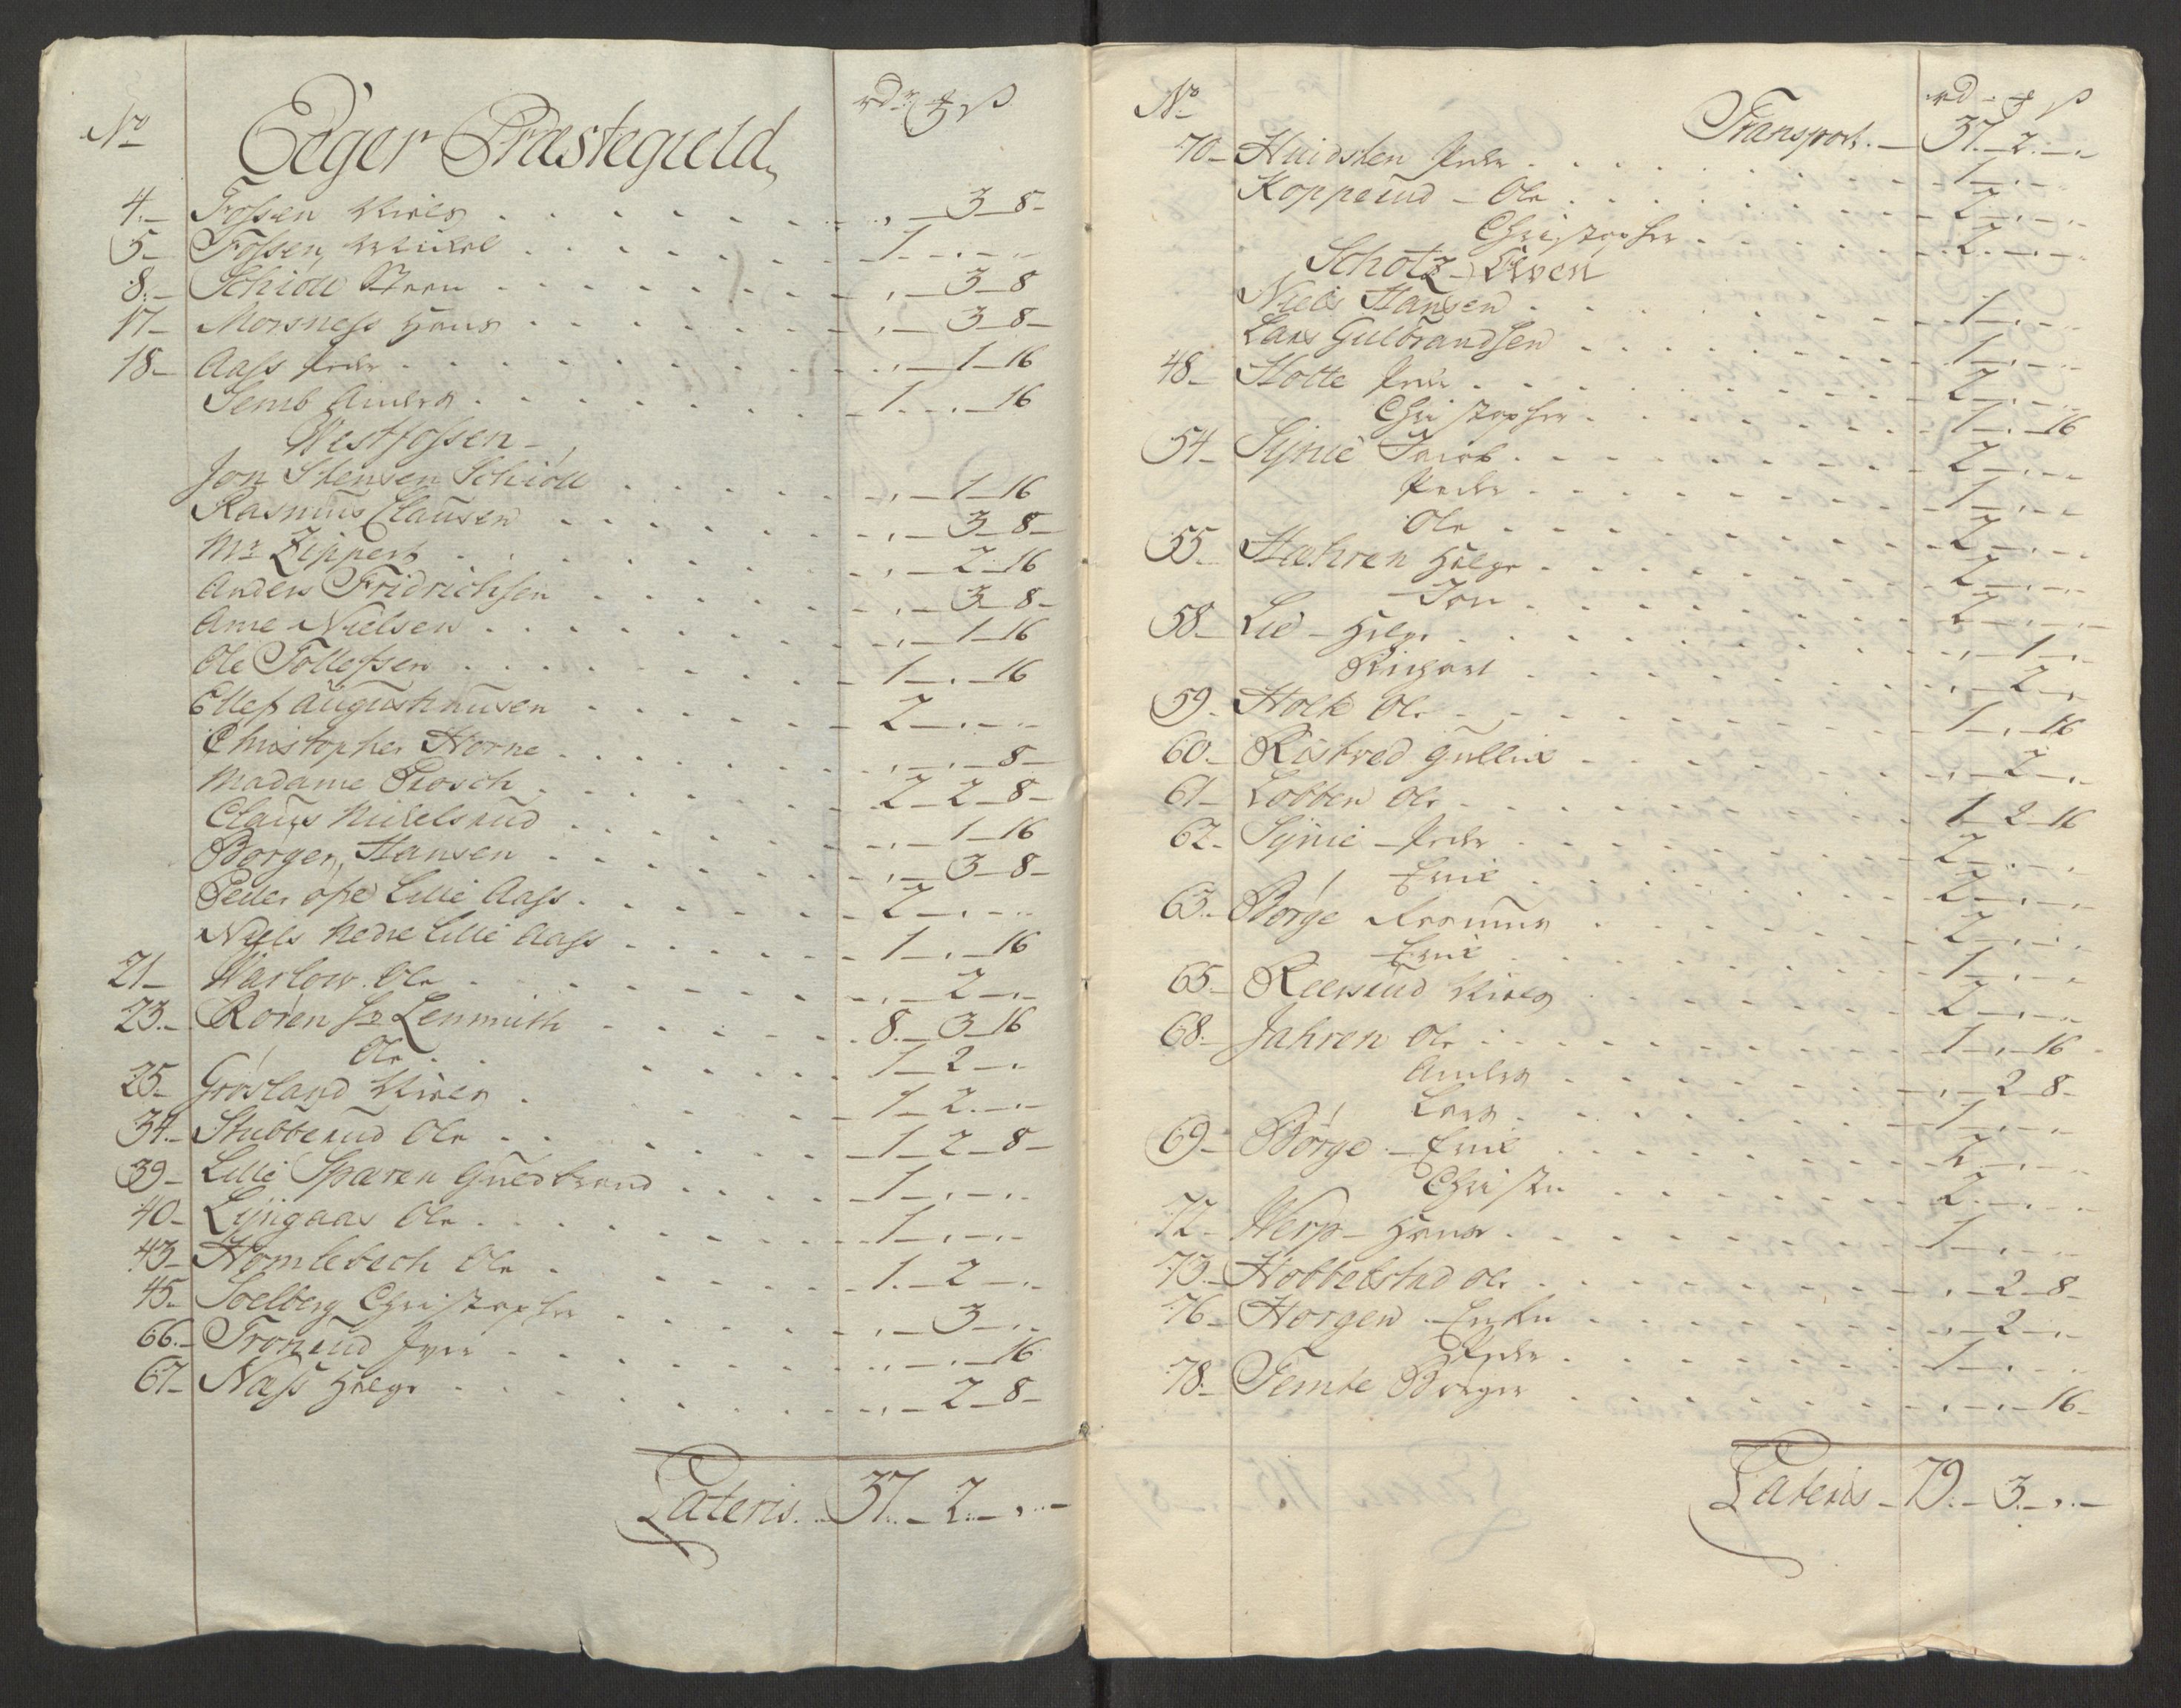 No Eger Præstegield rdr ß
4 Fossen Niels , 3 8
5 Fossen, Mickel 1 . .
8 Schiøll Steen , 3 8
17 Morsness Hans , 3 8
18 Aass Peder , 1 16
Semb Anders 1 . 16
Westfossen
Jon Stensen Schiøll , 1 16
Rasmus Clausen , 3 8
Mr Zippert , 2 16
Anders Fridrichsen , 3 8
Arne Nielsen , 1 16
Ole Tollefsen 1 . 16
Ellef Augustinusen 2 . .
Christopher Horne , . 8
Madame Prosch 2 2 8
Claus Mikelsrud , 1 16
Børger, Hansen , 3 8
Peder øfre Lille Aass 2 . .
Niels Nedre Lille Aass 1 . 16
21 Warlow Ole , 2 .
23 Røren Sr Lemmith 8 3 16
Ole 1 2 .
25 Grøsland Niels 1 2 .
34 Stubberud Ole 1 2 8
39 Lille Sparen Gudbrand 1 . .
40 Lyngaas Ole 1 . .
43 Homlebech Ole 1 2 .
45 Soelberg Christopher , 3 .
66 Tronrud Iver , . 16
67 Næss Helge , 2 8
Lateris 37 2 .
No rd ß
Transport 37 2 .
70 Huidsten Peder 1 . .
Kopperud Ole 2 . .
Christopher 2 . .
Schotz Elven
Niels Hansen 1 . .
Lars Gulbrandsen 1 . .
48 Hotte Peder 2 . .
Christopher 1 . 16
54 Synie Jacob 2 . .
Peder 1 . .
Ole 2 . .
55 Hæhren Helge 2 . .
Jon 2 . .
58 Lie Helge , 1 .
Richart , 2 .
59 Holte Ole 1 . 16
60 Ristved Gullik , 2 .
61 Lobben Ole 1 2 16
62 Synie Peder 2 . .
Erik 2 . .
63 Børge Rasmus 2 . .
Erik 1 . .
65 Reersrud Niels 2 . .
68 Jahren Ole 1 . 16
Anders , 2 8
Lars 1 . .
69 Børge Erik 2 . .
Christen 2 . .
72 Werp Hans 1 . .
73 Hobbelstad Ole , 2 8
76 Horgen Enken , 2 .
Peder 1 . .
78 Temte Børger , . 16
Lateris 79 3 .